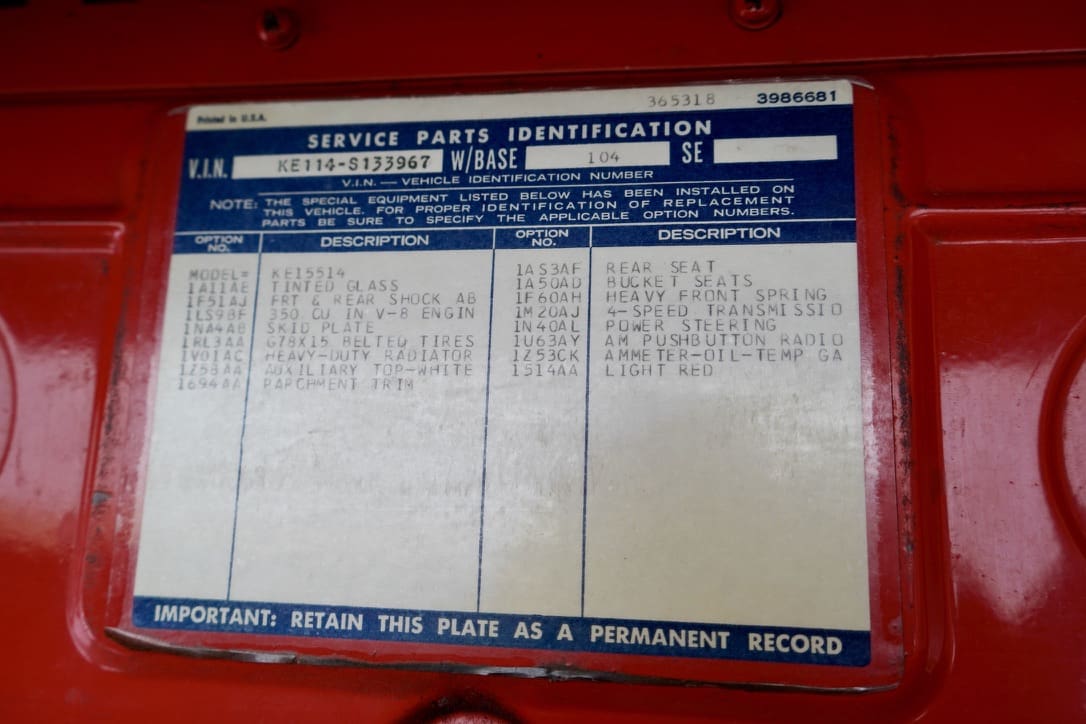 Printed in U.S.A.
365318 3986681
SERVICE PARTS IDENTIFICATION
V.I.N. KE114-S133967 W/BASE 104 SE
V.I.N. — VEHICLE IDENTIFICATION NUMBER
NOTE: THE SPECIAL EQUIPMENT LISTED BELOW HAS BEEN INSTALLED ON
THIS VEHICLE. FOR PROPER IDENTIFICATION OF REPLACEMENT
PARTS BE SURE TO SPECIFY THE APPLICABLE OPTION NUMBERS.
OPTION NO. DESCRIPTION OPTION NO. DESCRIPTION
MODEL= KE15514 1AS3AF REAR SEAT
1A11AE TINTED GLASS 1A50AD BUCKET SEATS
1F51AJ FRT & REAR SHOCK AB 1F60AH HEAVY FRONT SPRING
1LS9BF 350 CU IN V-8 ENGIN 1M20AJ 4-SPEED TRANSMISSIO
1NA4AB SKID PLATE 1N40AL POWER STEERING
1RL3AA G78X15 BELTED TIRES 1U63AY AM PUSHBUTTON RADIO
1V01AC HEAVY-DUTY RADIATOR 1Z53CK AMMETER-OIL-TEMP GA
1Z58AA AUXILIARY TOP-WHITE 1514AA LIGHT RED
1694AA PARCHMENT TRIM
IMPORTANT: RETAIN THIS PLATE AS A PERMANENT RECORD